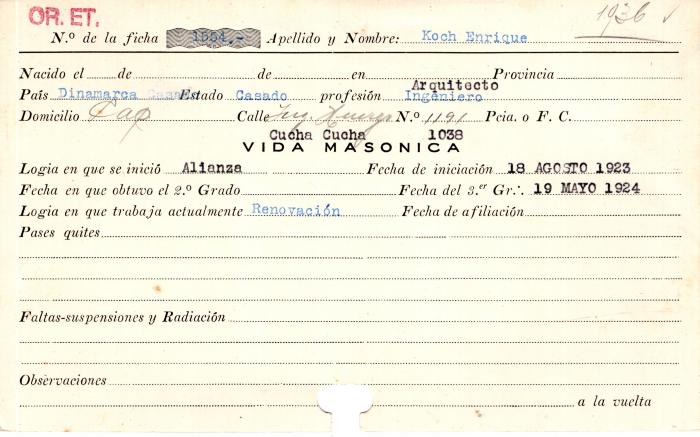 OR. ET.
1936 ✓
N.º de la ficha 1554,- Apellido y Nombre: Koch Enrique
Nacido el de de en Provincia
Arquitecto
País Dinamarca Estado Casado profesión Ingeniero
Domicilio Cap Calle Ing. Huergo N.º 1191 Pcia. o F. C.
Cucha Cucha 1038
VIDA MASONICA
Logia en que se inició Alianza Fecha de iniciación 18 AGOSTO 1923
Fecha en que obtuvo el 2.º Grado Fecha del 3.er Gr.: 19 MAYO 1924
Logia en que trabaja actualmente Renovación Fecha de afiliación
Pases quites
Faltas-suspensiones y Radiación
Observaciones
a la vuelta